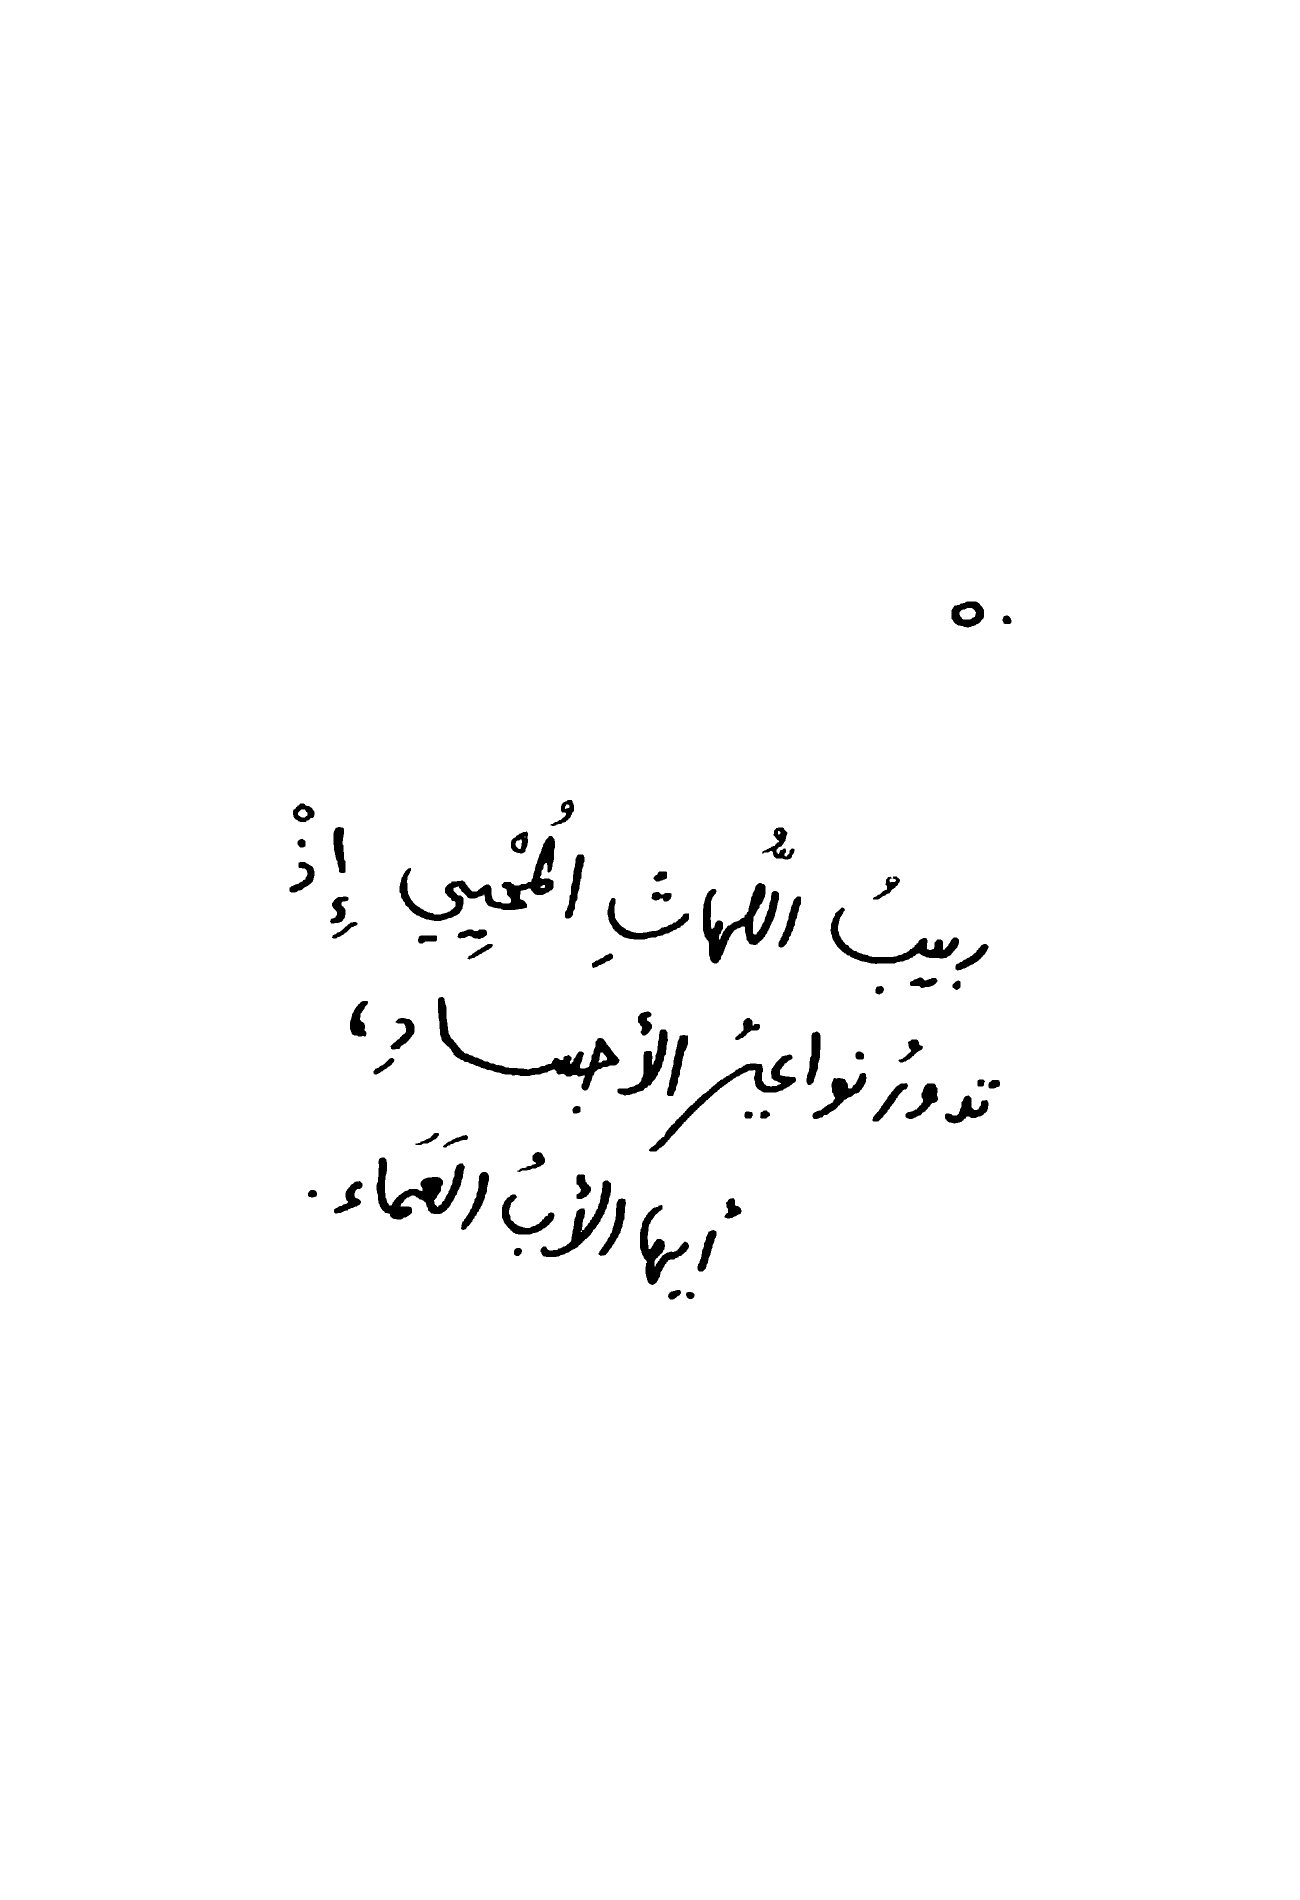 ٥.
ربيبُ اللُّهاثِ المُحْيِي إِذْ
تدورُ نواعيرُ الأجسادِ،
أيها الأبُ العَمَاء.